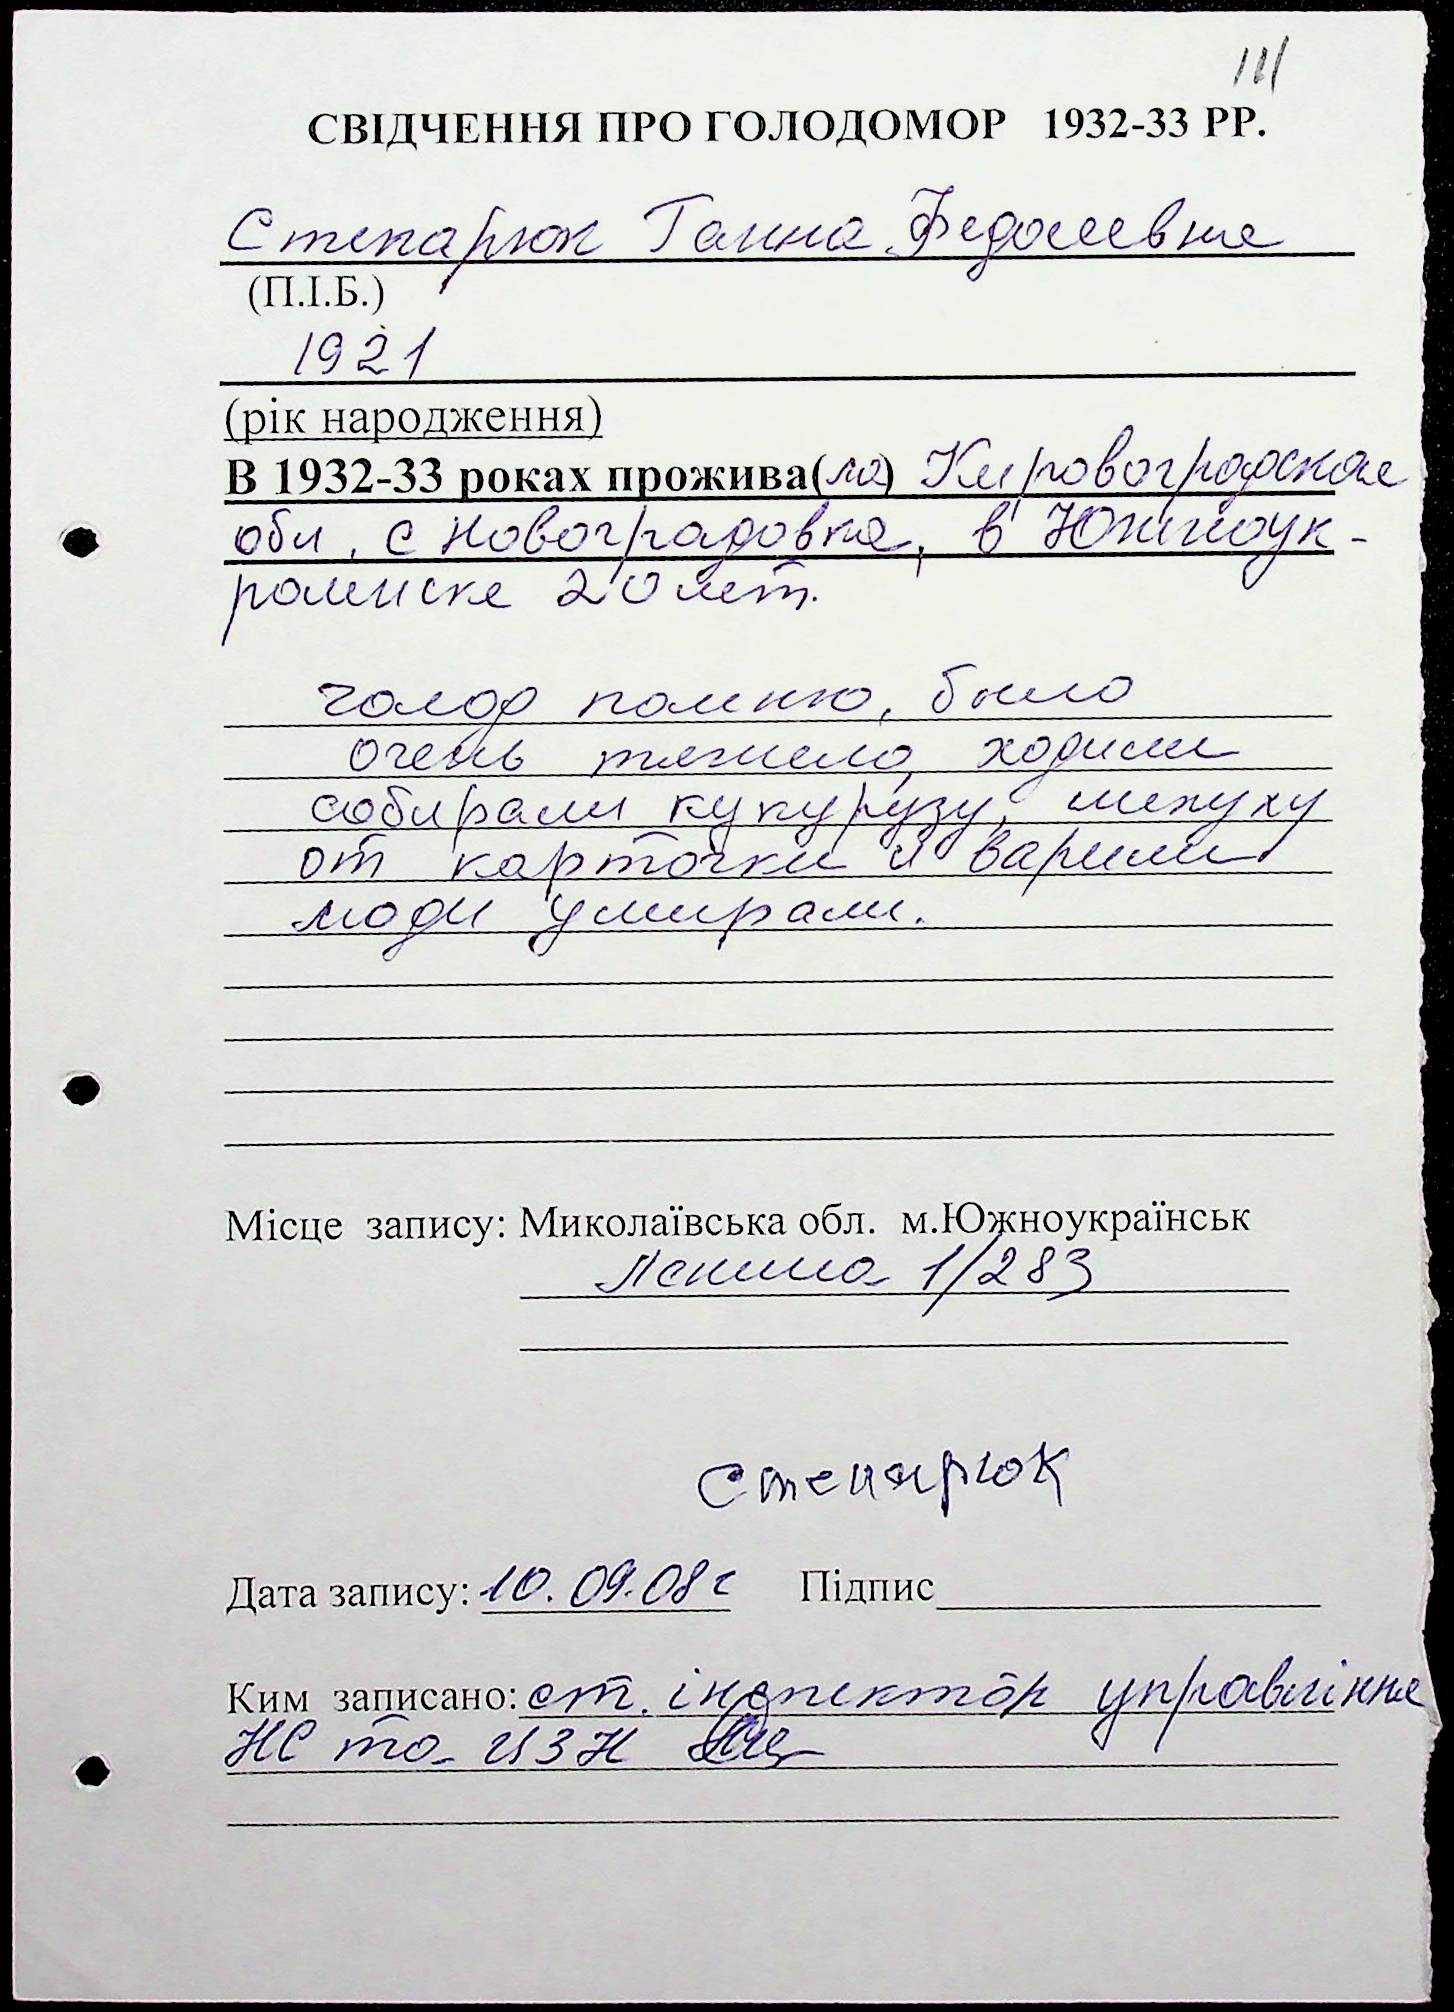 111
СВІДЧЕННЯ ПРО ГОЛОДОМОР 1932-33 РР.
Степарюк Ганна Федосеевна
(П.І.Б.)
1921
(рік народження)
В 1932-33 роках прожива(ла) Кировоградская
обл. с Новоградовка, в Южноук-
раинске 20 лет.
голод помню, было
очень тяжело, ходили
собирали кукурузу, шелуху
от карточки и варили
люди умирали.
Місце запису: Миколаївська обл. м.Южноукраїнськ
Ленина 1/283
Степарюк
Дата запису: 10.09.08г Підпис
Ким записано: ст. інспектор управління
НС та ЦЗН